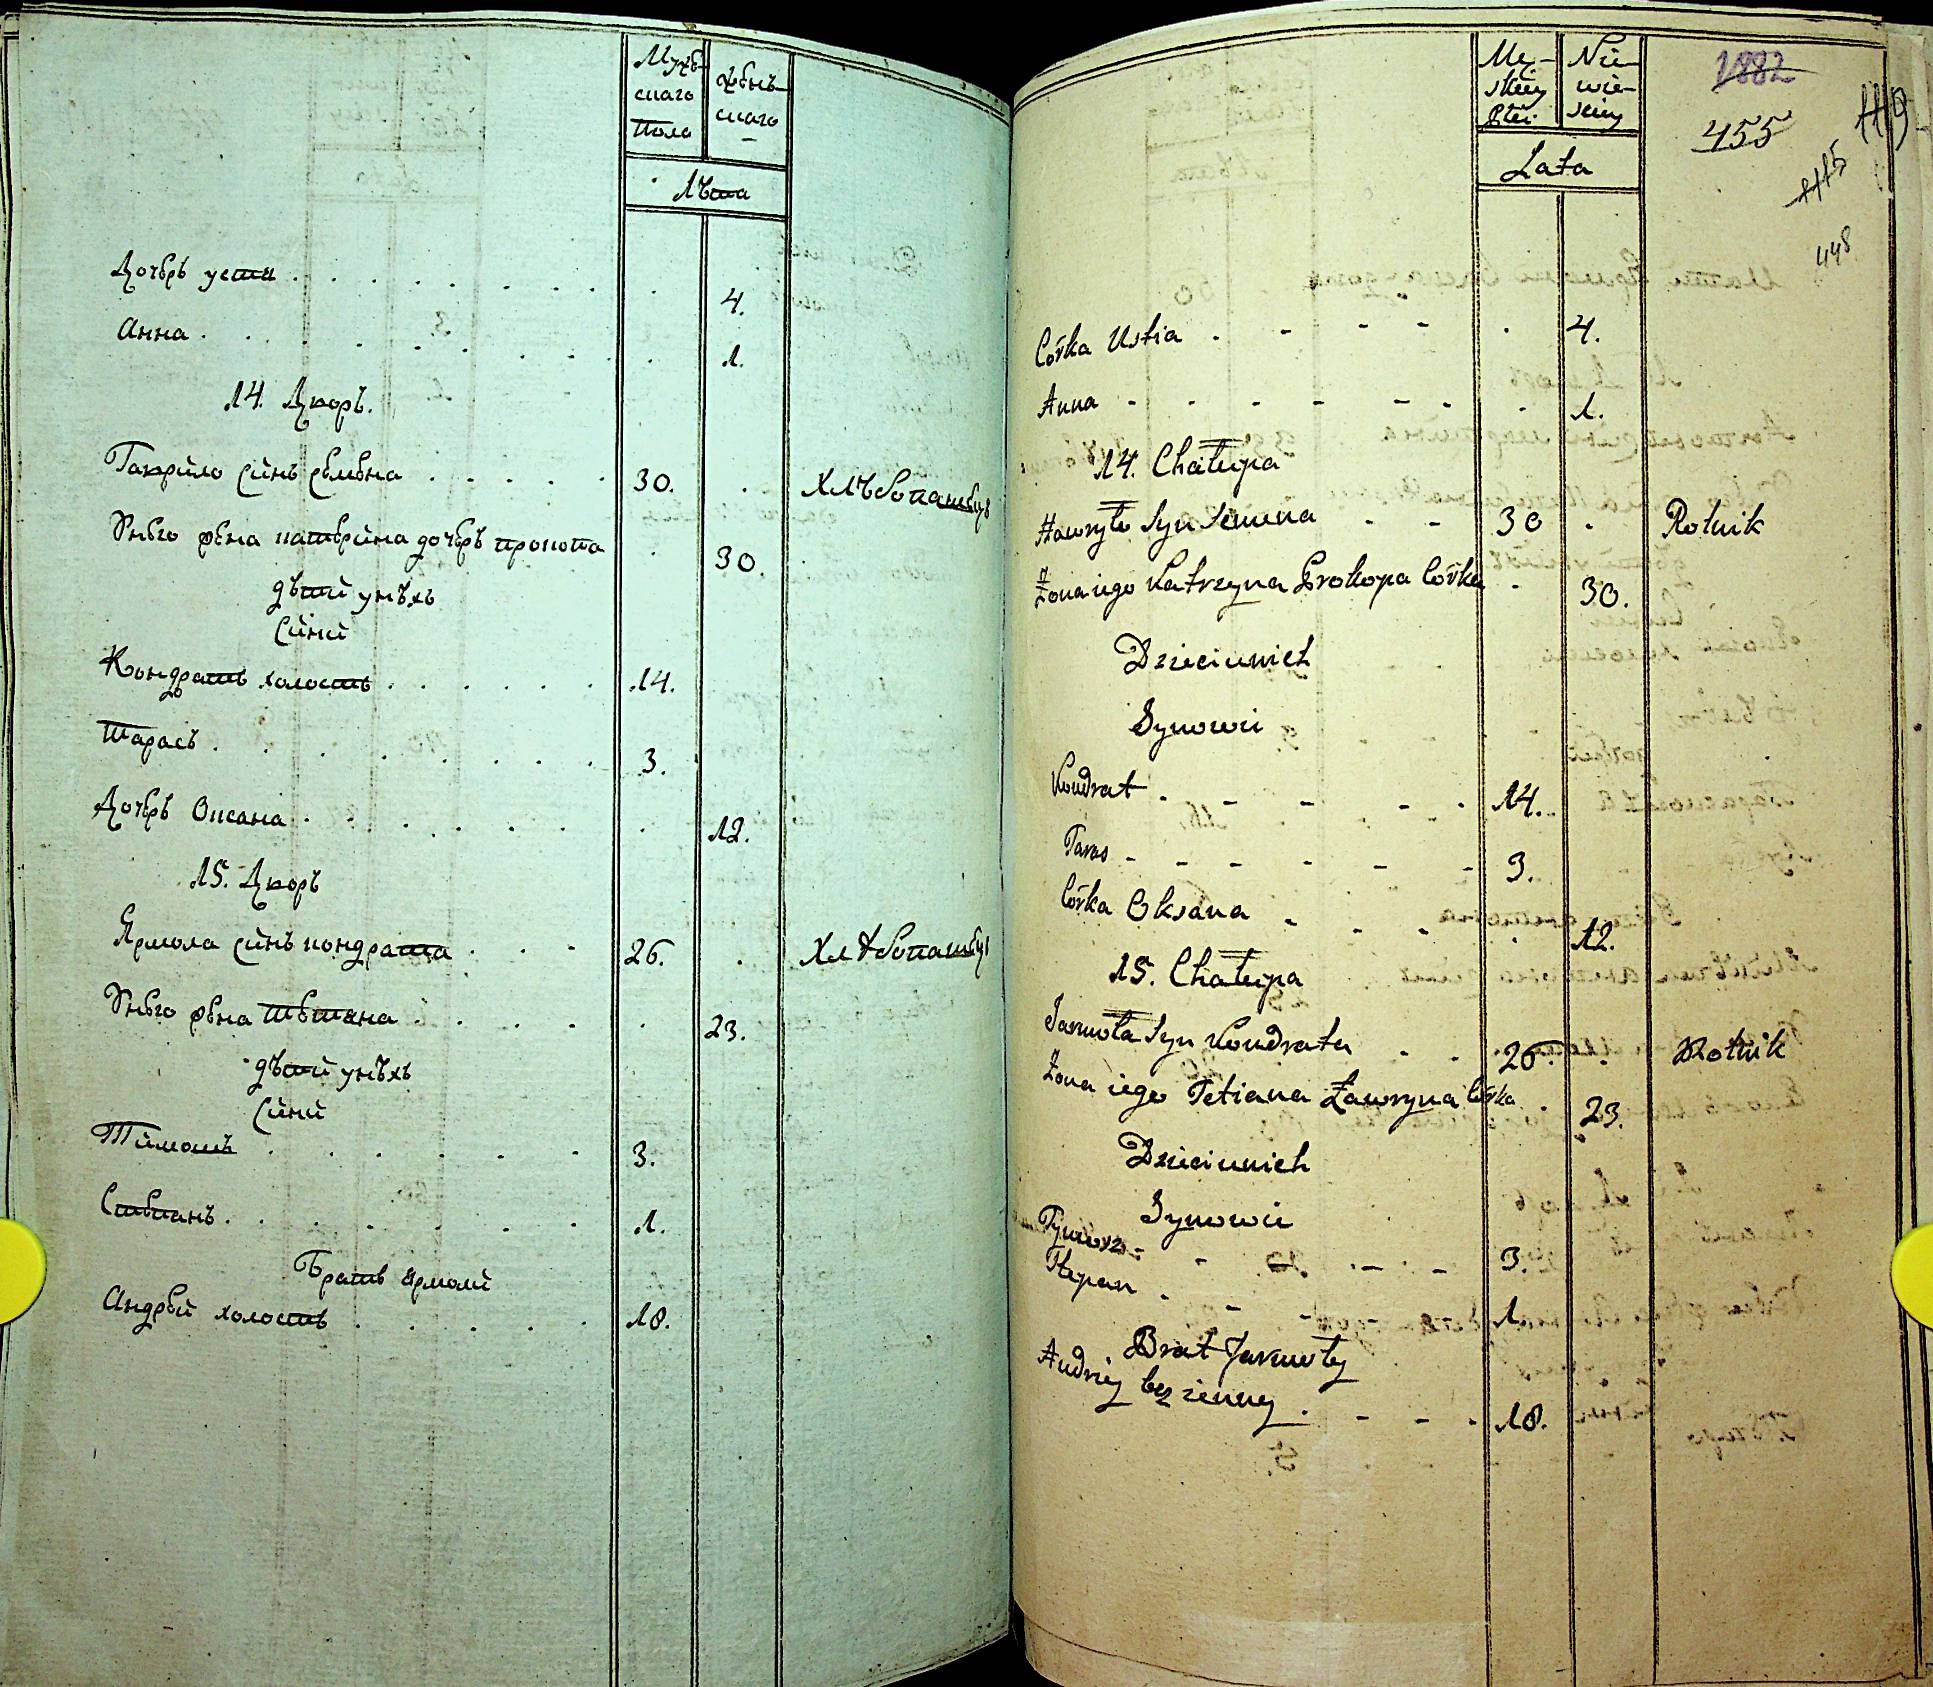 Мужескаго пола
женскаго
лѣта
Дочерь устя . . . . . . . 4.
Анна . . . . . . . 1.
14. Дворъ.
Гаврило синъ семена . . . . . 30. . хлѣбопашецъ
Унего жена катерина дочерь прокопа . 30.
дѣтей унѣхъ
сини
Кондратъ холостъ . . . . . . 14.
Тарасъ . . . . . . 3.
Дочерь Оксана . . . . . . . 12.
15. Дворъ
Ярмола синъ кондрата . . . 26. . хлѣбопашецъ
Унего жена тетяна . . . . . 23.
дѣтей унѣхъ
сини
Тимошъ . . . . . . 3.
Степанъ . . . . . . 1.
Братъ ярмоли
Андрей холостъ . . . . . 18.
1882
455
119
1115
448
Męskiey płci
Niewieskiey
Lata
Córka Ustia . - - - . 4.
Anna - - - - - - . 1.
14. Chałupa
Hawryło Syn Semena - - 30 . Rolnik
Żona iego Katrzyna Prokopa Córka - 30.
Dzieciunich
Synowie
Kondrat . - - - . 14.
Taras - - - - - - 3.
Córka Oksana - - - . 12.
15. Chałupa
Jarmoła Syn Kondrata . . 26. . Rolnik
Żona iego Tetiana Ławryna Córka . 23.
Dzieciunich
Synowie
Tymosz - - - - 3.
Stepan . - - - 1.
Brat Jarmoły
Andriy bezżenny . - - . 18.